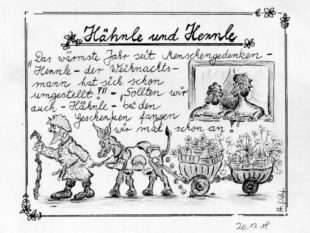 Hähnle und Hennle
"Das wärmste Jahr seit Menschengedenken -
Hennle - der Weihnachts-
mann hat sich schon
umgestellt !!!" - "Sollten wir
auch - Hähnle - bei den
Geschenken fangen
wir mal schon an!"
20.12.18